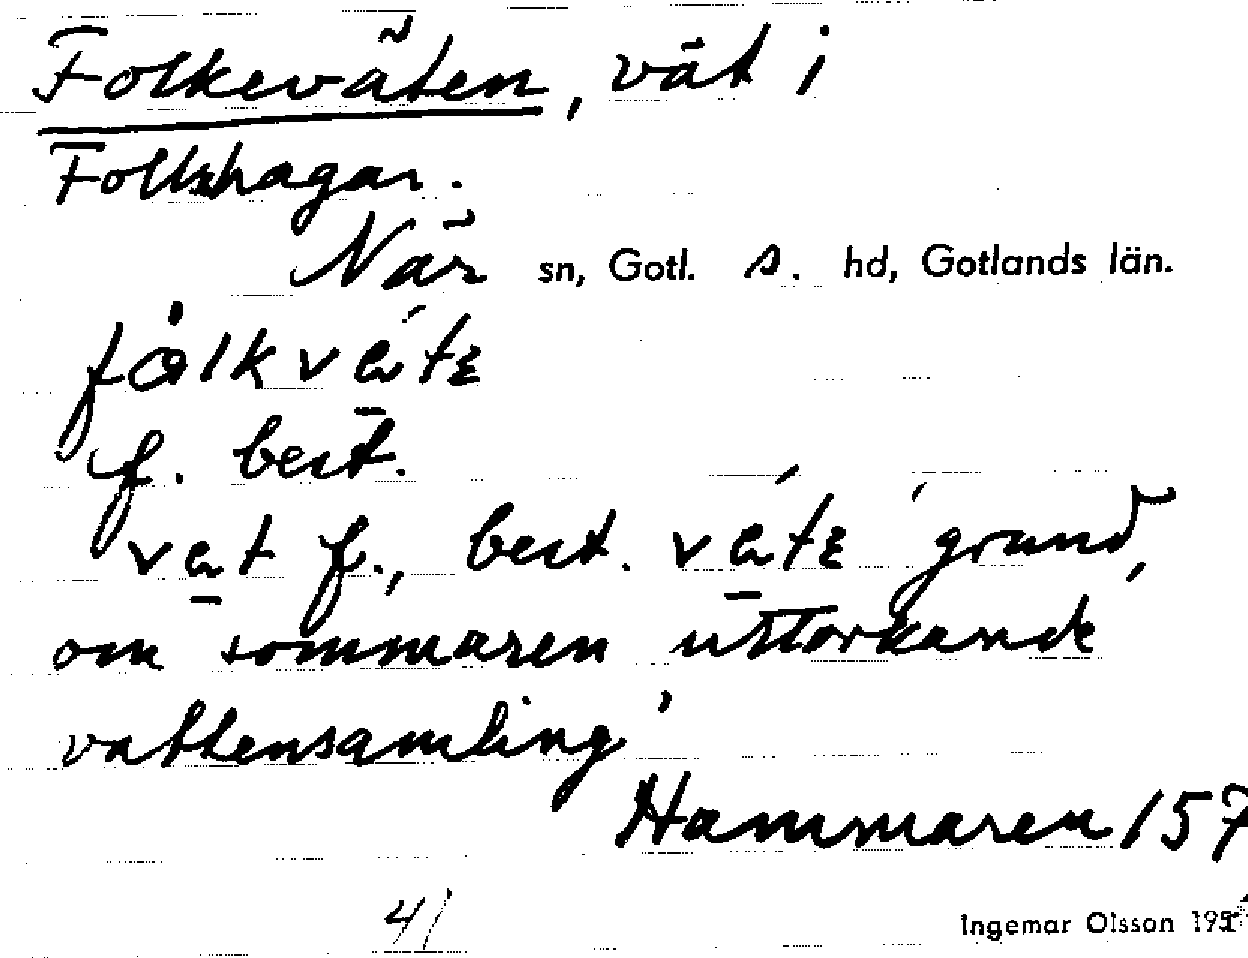 Folkeväten, vät i
Folkhagar.
När sn, Gotl. s. hd, Gotlands län.
fålkväte
f. best.
vät f., best. väte 'grund,
om sommaren uttorkande
vattensamling'
Hammaren 157
41 Ingemar Olsson